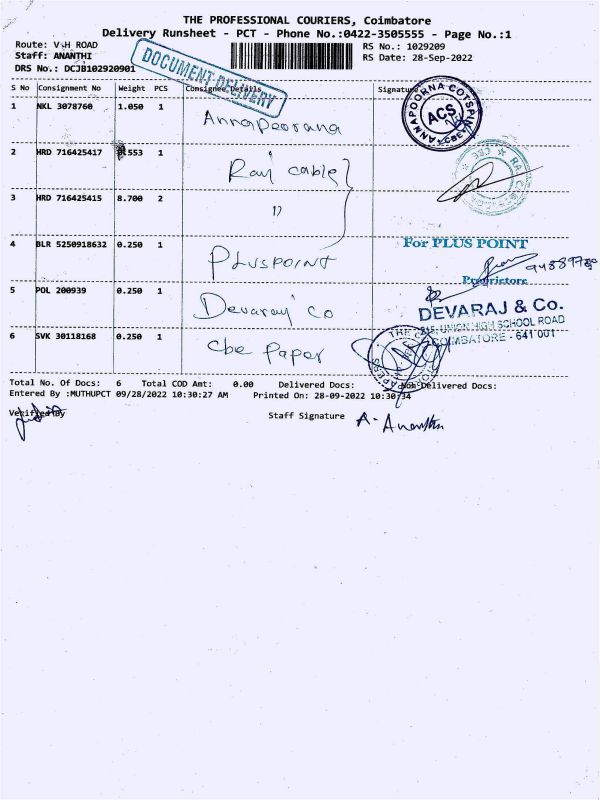 THE PROFESSIONAL COURIERS, Coimbatore
Delivery Runsheet - PCT - Phone No.:0422-3505555 - Page No.:1
Route: V.H ROAD
RS No.: 1029209
Staff: ANANTHI
RS Date: 28-Sep-2022
DRS No.: DCJB102920901
DOCUMENT DELIVERY
S No Consignment No Weight PCS Consignee Details Signature
1 NKL 3078760 1.050 1 Annapoorana
ANNAPOORNA COTSPIN
ACS
2 HRD 716425417 553 1 Ravi cable
3 HRD 716425415 8.700 2 "
4 BLR 5250918632 0.250 1 PLUSPOINT
For PLUS POINT
Proprietore
5 POL 200939 0.250 1 Devaraj Co
DEVARAJ & Co.
215, UNION HIGH SCHOOL ROAD
COIMBATORE - 641 001
6 SVK 30118168 0.250 1 cbe Paper
Total No. Of Docs: 6 Total COD Amt: 0.00 Delivered Docs: Non Delivered Docs:
Entered By :MUTHUPCT 09/28/2022 10:30:27 AM Printed On: 28-09-2022 10:30:34
Verified By
Staff Signature A. Ananthi